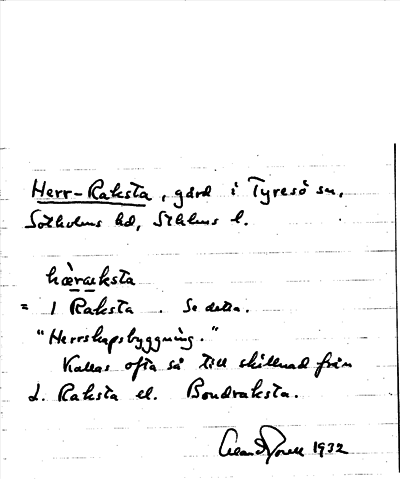 Herr-Raksta, gård i Tyresö sn,
Sotholms hd, Sthlms l.
hæ̀ræksta
= 1 Raksta. Se detta.
"Herrskapsbyggning."
Kallas ofta så till skillnad från
L. Raksta el. Bondraksta.
1932